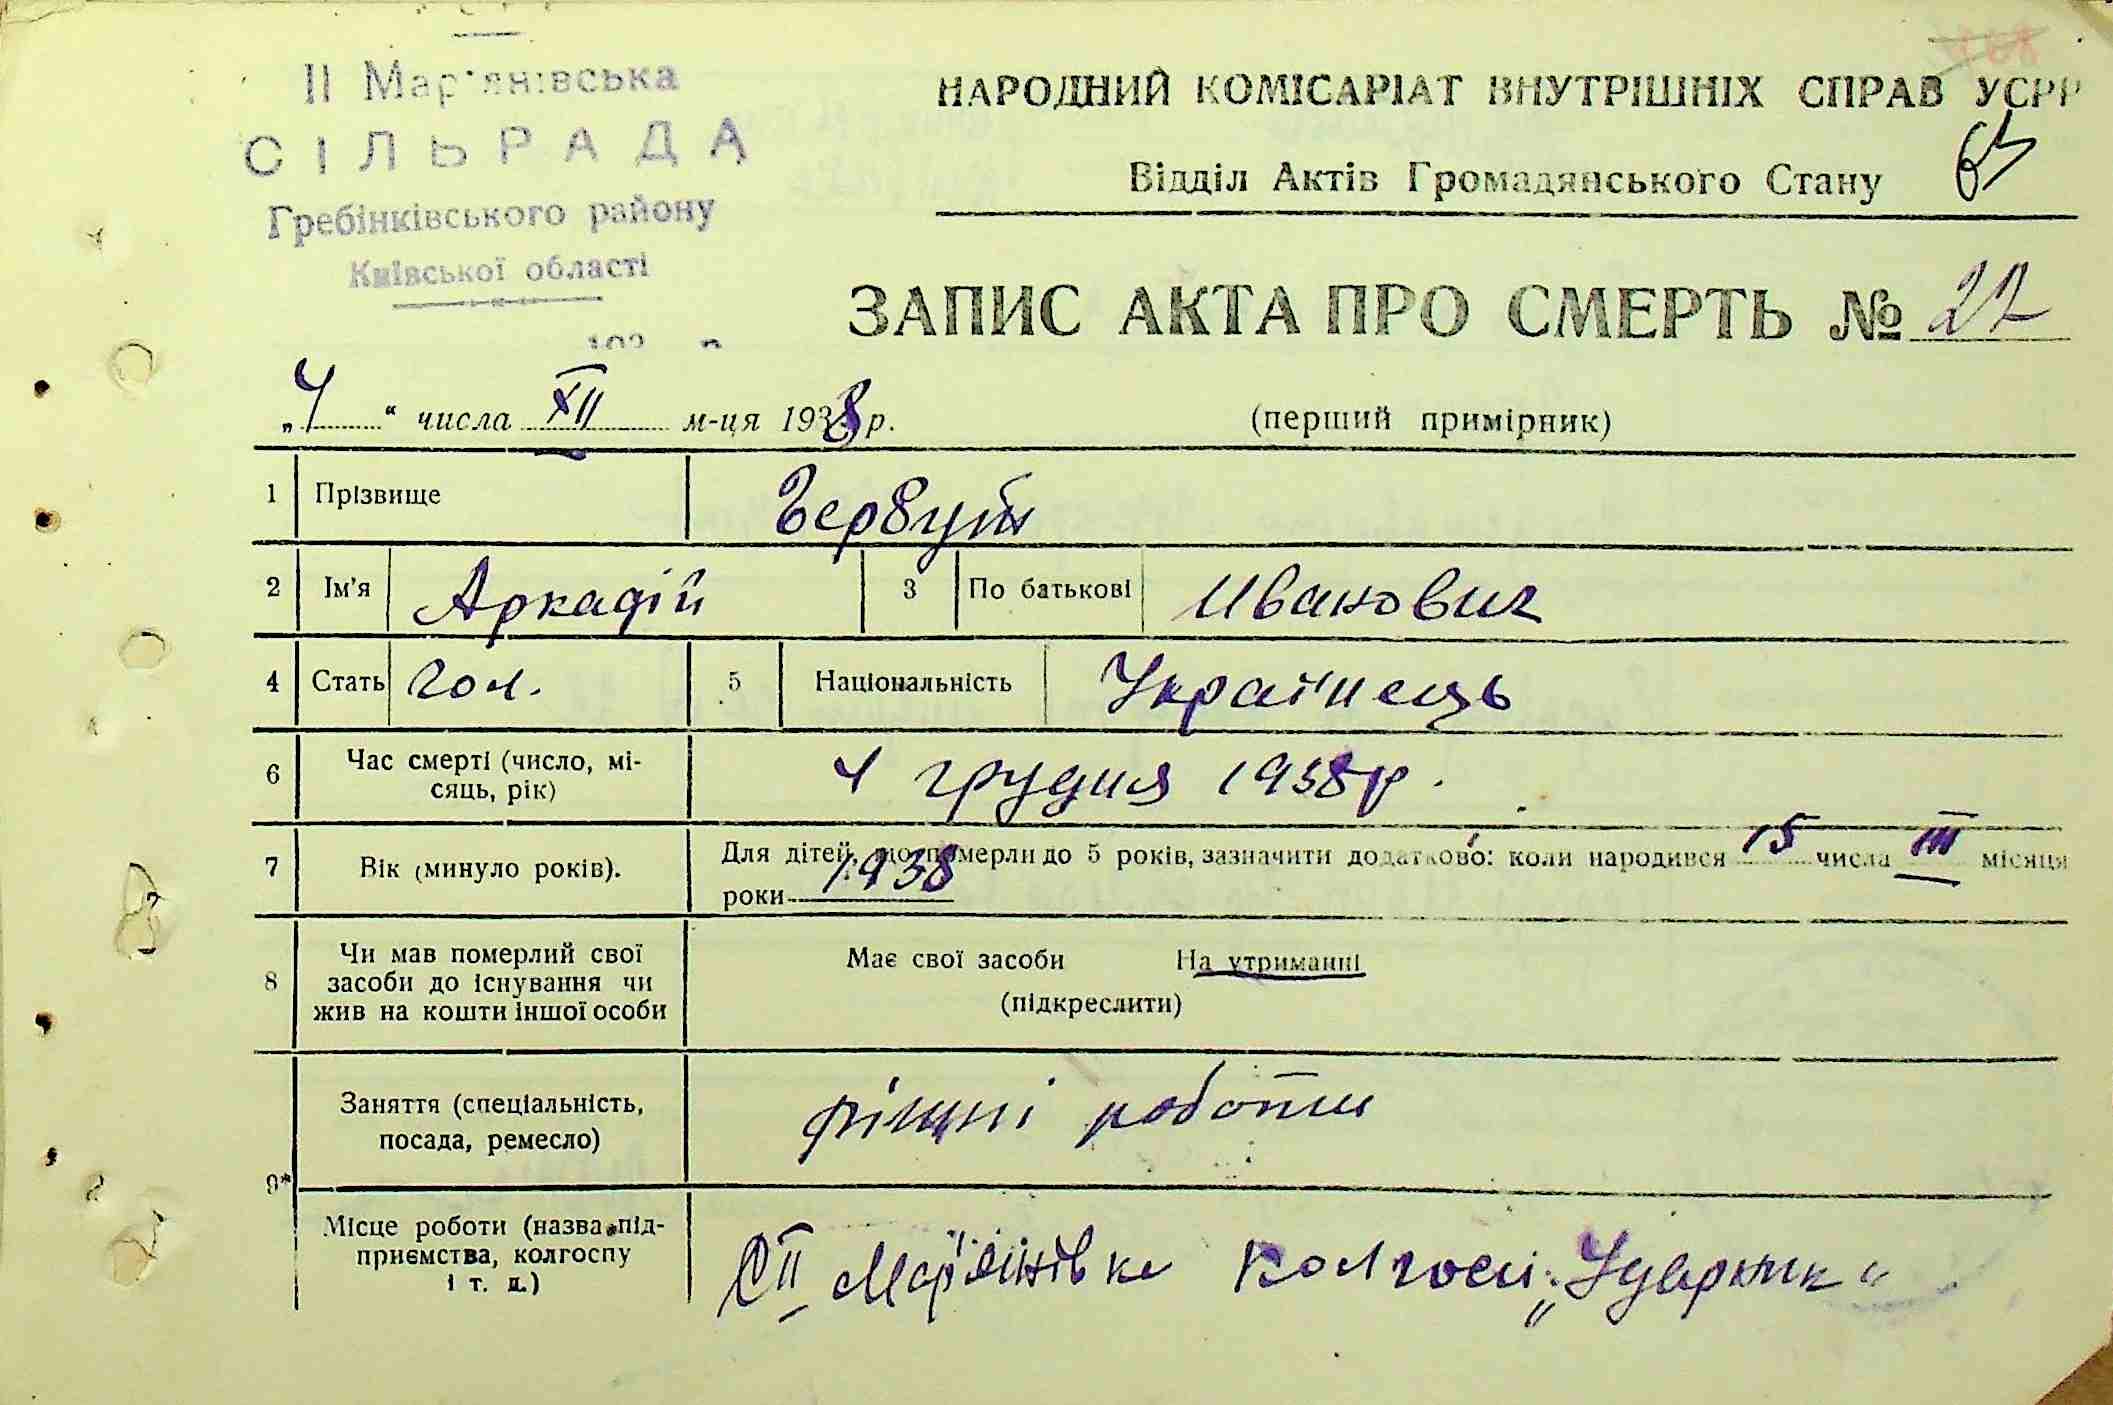 II Мар'янівська
СІЛЬРАДА
Гребінківського району
Київської області
НАРОДНИЙ КОМІСАРІАТ ВНУТРІШНІХ СПРАВ УСРР
Відділ Актів Громадянського Стану
63
ЗАПИС АКТА ПРО СМЕРТЬ № 22
„4“ числа XII м-ця 1938 р.
(перший примірник)
1 Прізвище
2 Ім'я Аркадій 3 По батькові Иванович
4 Стать чол. 5 Національність Українець
6 Час смерті (число, мі-
сяць, рік) 4 грудня 1938 р.
7 Вік (минуло років). Для дітей, що померли до 5 років, зазначити додатково: коли народився 15 числа III місяця
роки 1938
8 Чи мав померлий свої
засоби до існування чи
жив на кошти іншої особи
Має свої засоби На утриманні
(підкреслити)
9* Заняття (спеціальність,
посада, ремесло) різні роботи
Місце роботи (назва під-
приємства, колгоспу
і т. д.) II Мар'янівка Колгосп „Ударник“